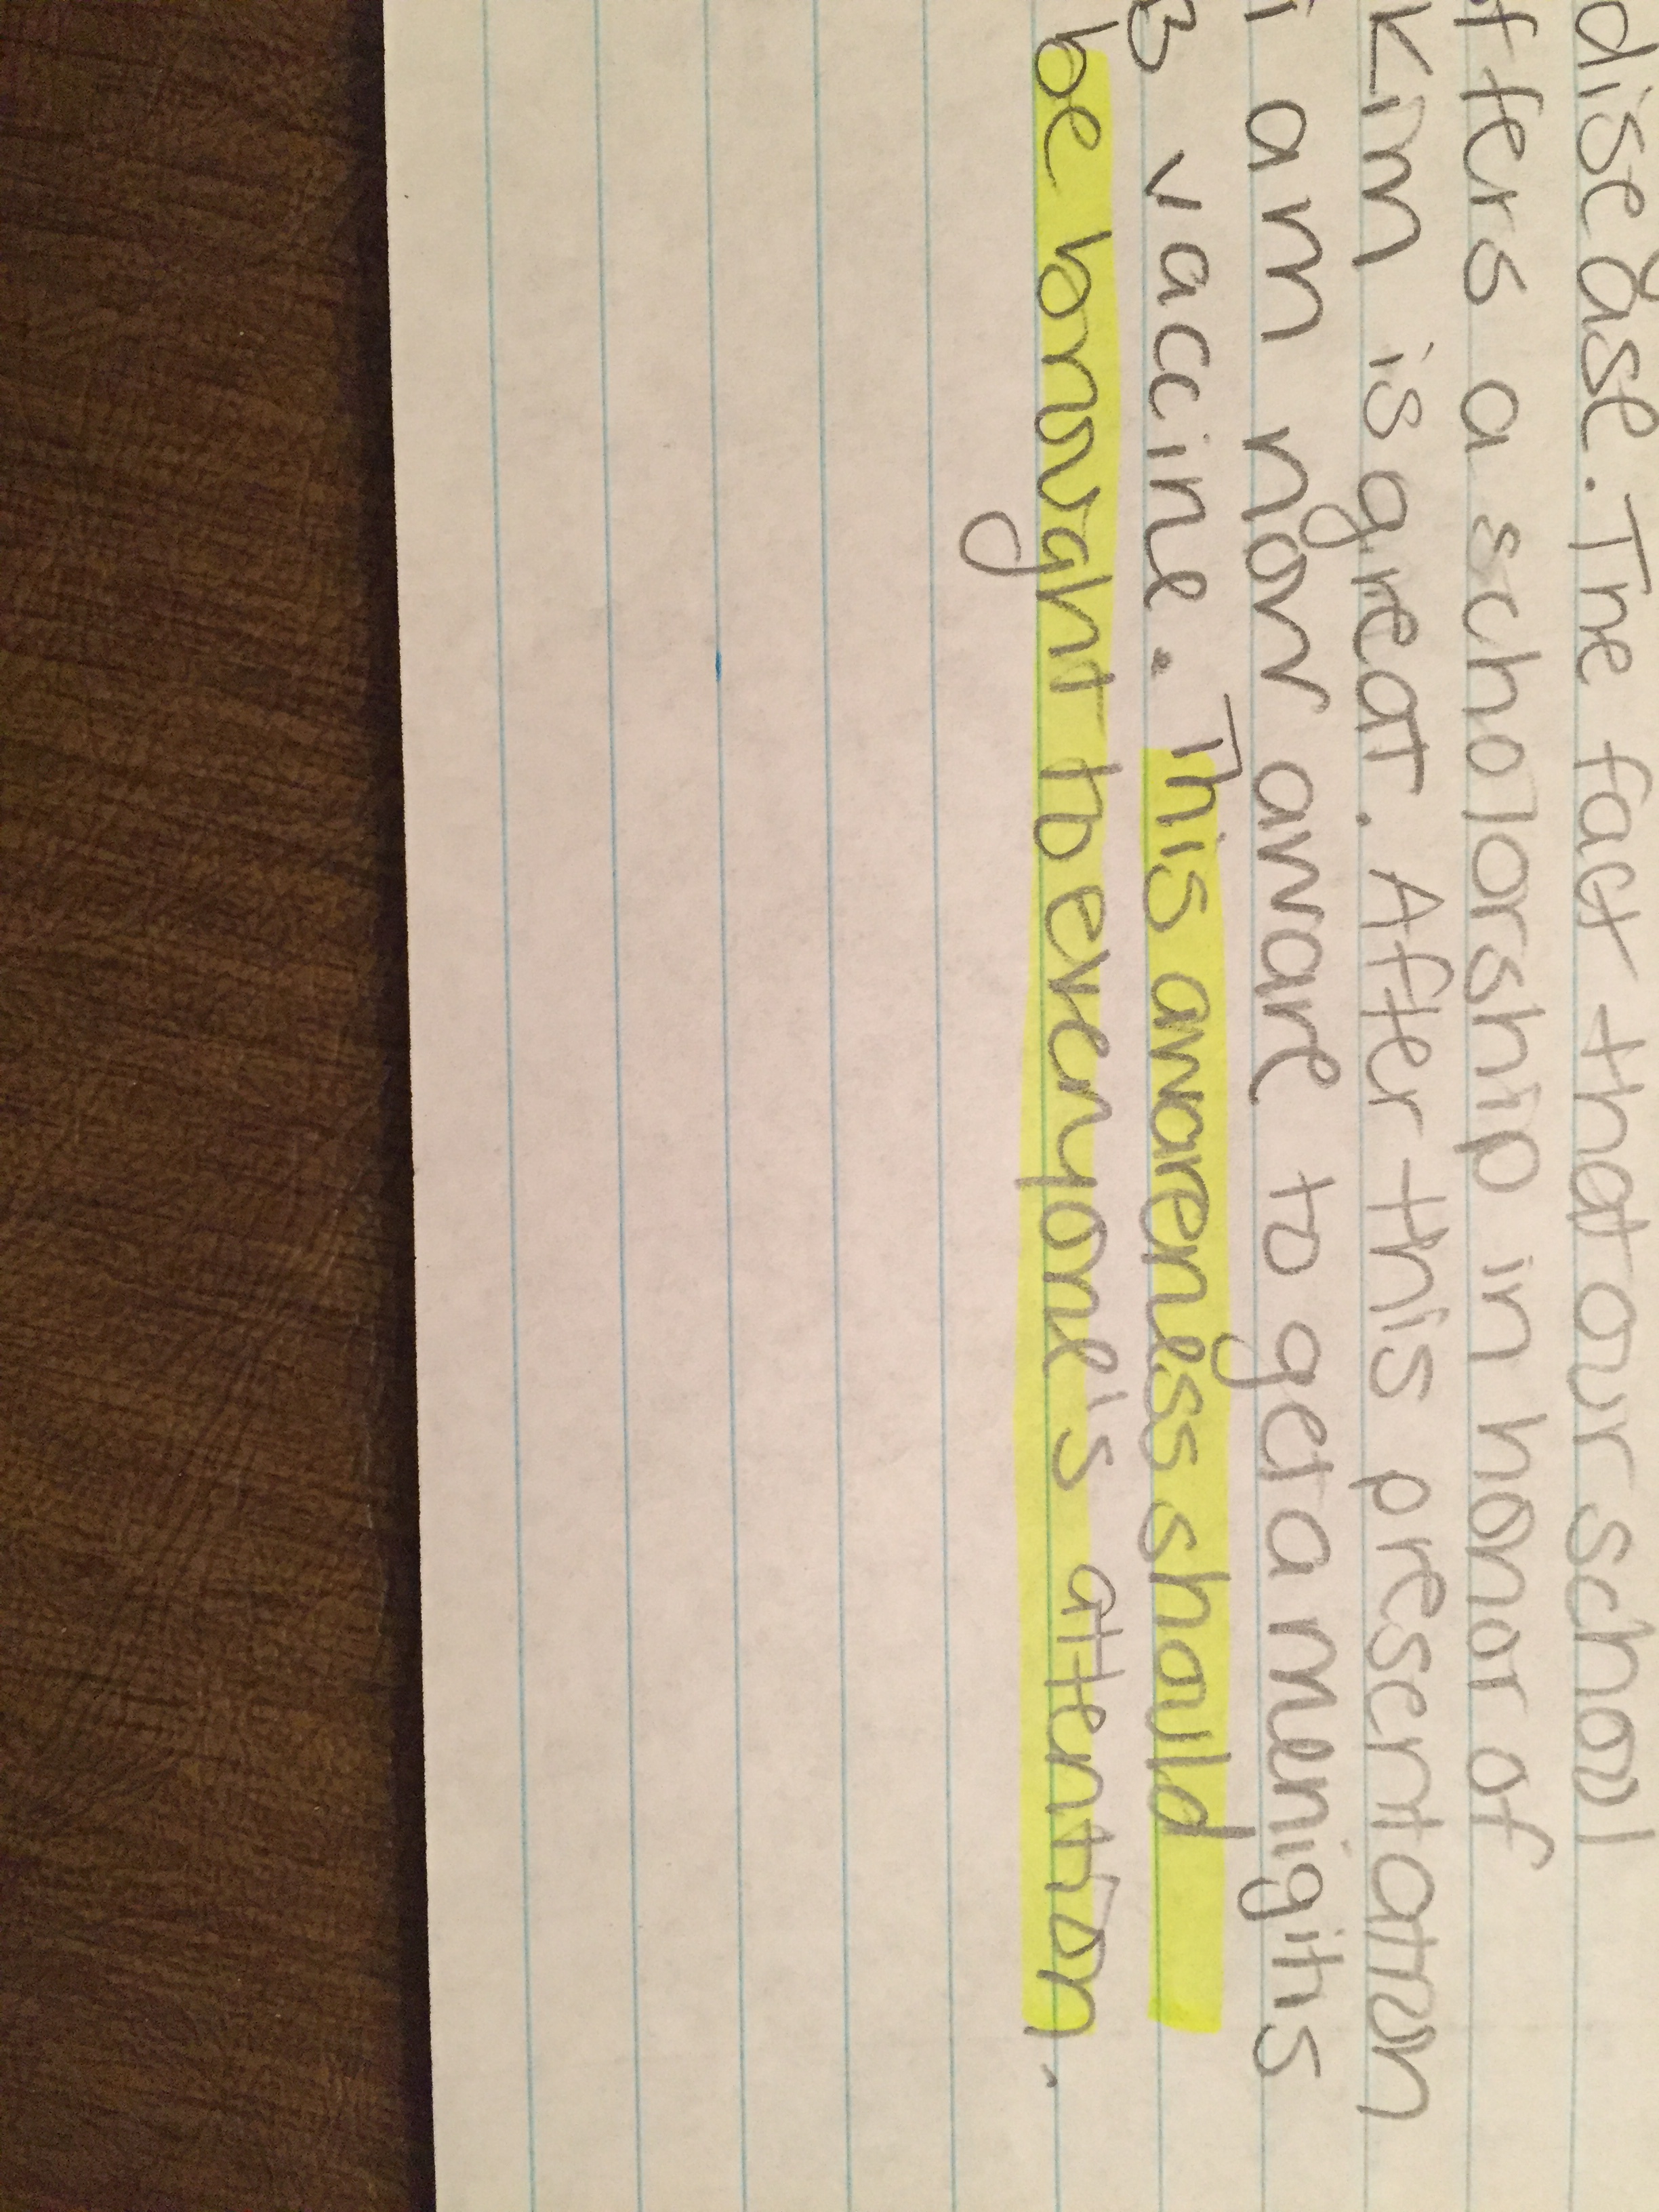 disease. The fact that our school
ffers a scholorship in honor of
Kim is great. After this presentation
i am now aware to get a menigitis
B vaccine. This awareness should
be brought to everyone's attention.